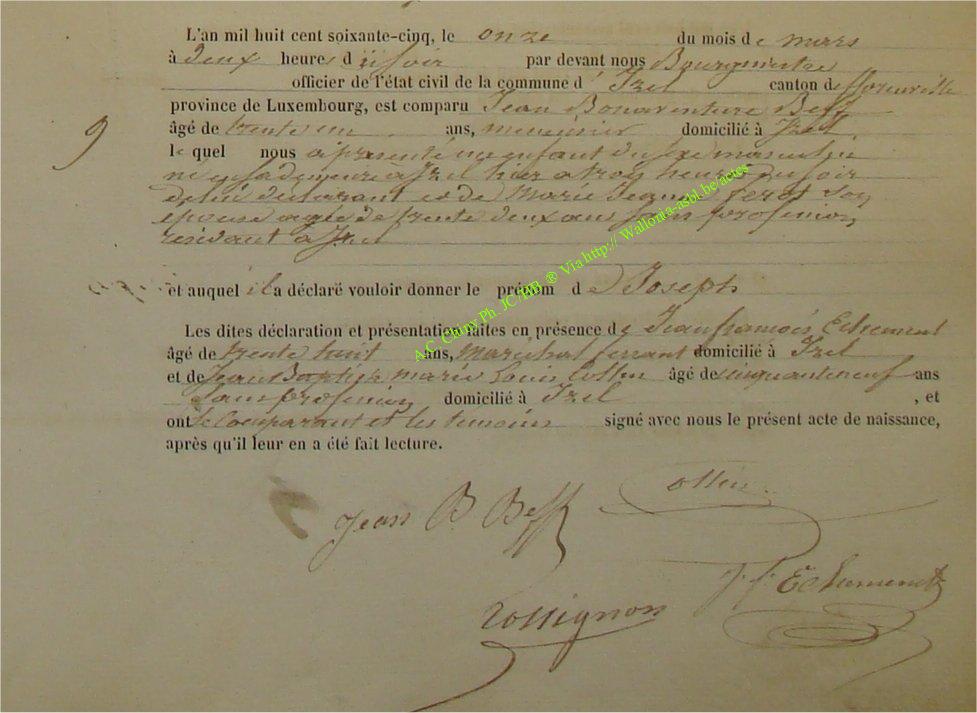 L'an mil huit cent soixante-cinq, le onze du mois de mars
à deux heures du soir par devant nous Bourgmestre
officier de l'état civil de la commune d'Izel canton de florenville
province de Luxembourg, est comparu Jean Bonaventure Beff
9 âgé de trente un ans, menuisier domicilié à Izel,
le quel nous a présenté un enfant du sexe masculin
né en sa demeure a Izel hier a trois heures du soir
de lui déclarant et de Marie Jeanne feret son
épouse agée de trente deux ans sans profession
résidant a Izel
et auquel il a déclaré vouloir donner le prénom de Joseph
Les dites déclaration et présentation faites en présence de Jean françois
âgé de trente huit ans, maréchal ferrant domicilié à Izel
et de Jean Baptiste marie Louis Collin âgé de cinquante neuf ans
sans profession domicilié à Izel , et
ont le comparant et les temoins signé avec nous le présent acte de naissance,
après qu'il leur en a été fait lecture.
Collin
Jean B Beff
J. f.
Rossignon
A.C. Chiny Ph. JC/HB ® Via http:// Wallonia-asbl.be/actes